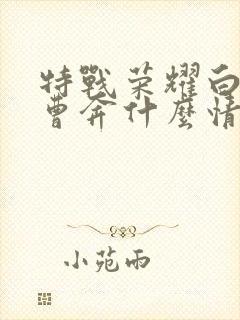 特戰荣耀白
曹奔什麼情
小苑雨